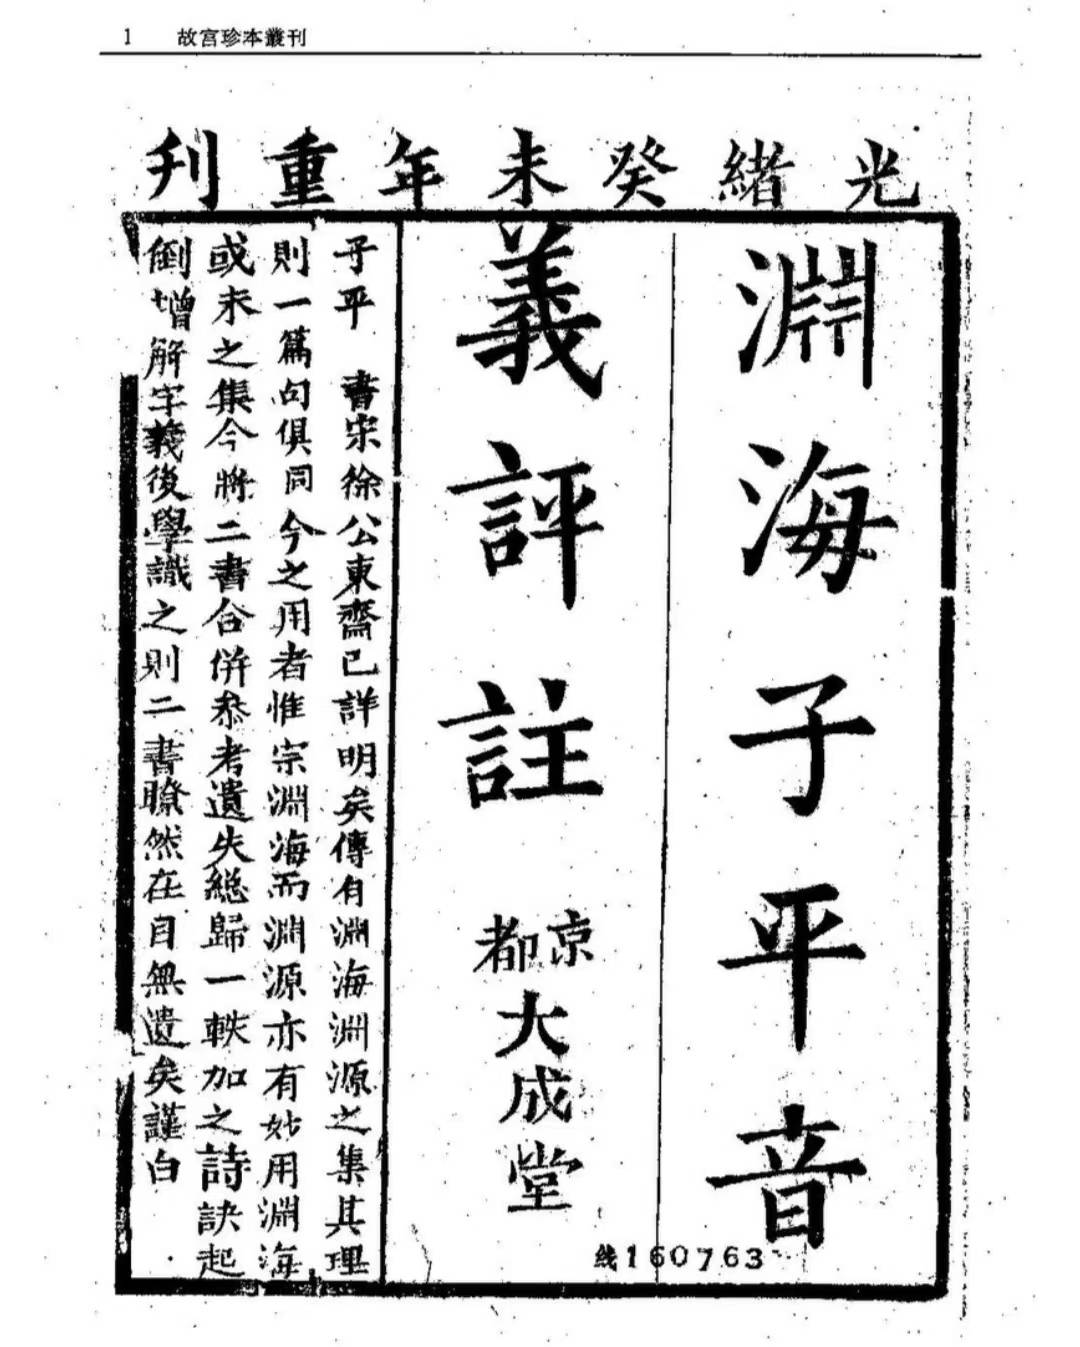 1 故宮珍本叢刊
光緒癸未年重刋
淵海子平音
義評註
京都
大成堂
子平 書宋徐公東齋已詳明矣傳有淵海淵源之集其理
則一篇句俱同今之用者惟宗淵海而淵源亦有妙用淵海
或未之集今將二書合併叅考遺失緫歸一帙加之詩訣起
倒增解字義後學識之則二書瞭然在目無遺矣謹白
线160763